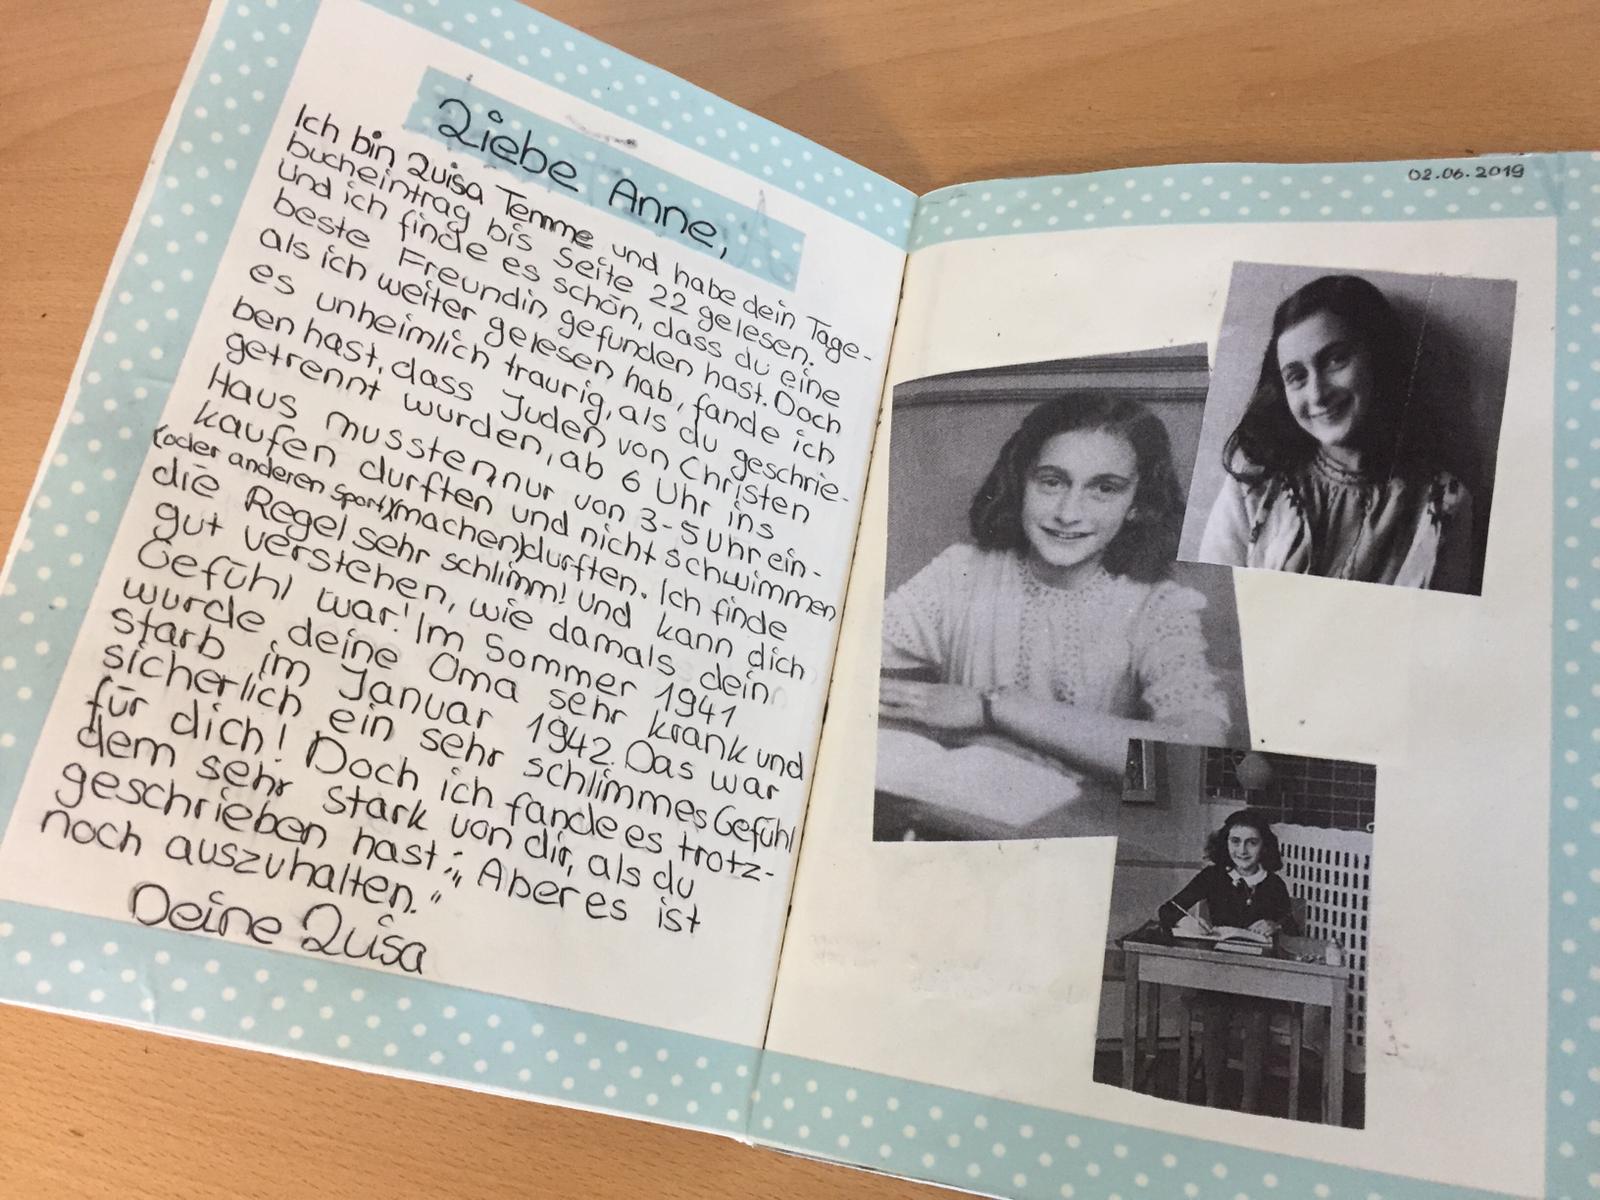 Liebe Anne,
Ich bin Luisa Temme und habe dein Tage-
bucheintrag bis Seite 22 gelesen.
und ich finde es schön, dass du eine
beste Freundin gefunden hast. Doch
als ich weiter gelesen hab, fande ich
es unheimlich traurig, als du geschrie-
ben hast, dass Juden von Christen
getrennt wurden, ab 6 Uhr ins
Haus mussten, nur von 3-5 Uhr ein-
kaufen durften und nicht schwimmen
(oder anderen Sport)(machen)durften. Ich finde
die Regel sehr schlimm! und kann dich
gut verstehen, wie damals dein
Gefühl war! Im Sommer 1941
wurde deine Oma sehr krank und
starb im Januar 1942. Das war
sicherlich ein sehr schlimmes Gefühl
für dich! Doch ich fande es trotz-
dem sehr stark von dir, als du
geschrieben hast: „Aber es ist
noch auszuhalten."
Deine Luisa
02.06.2019